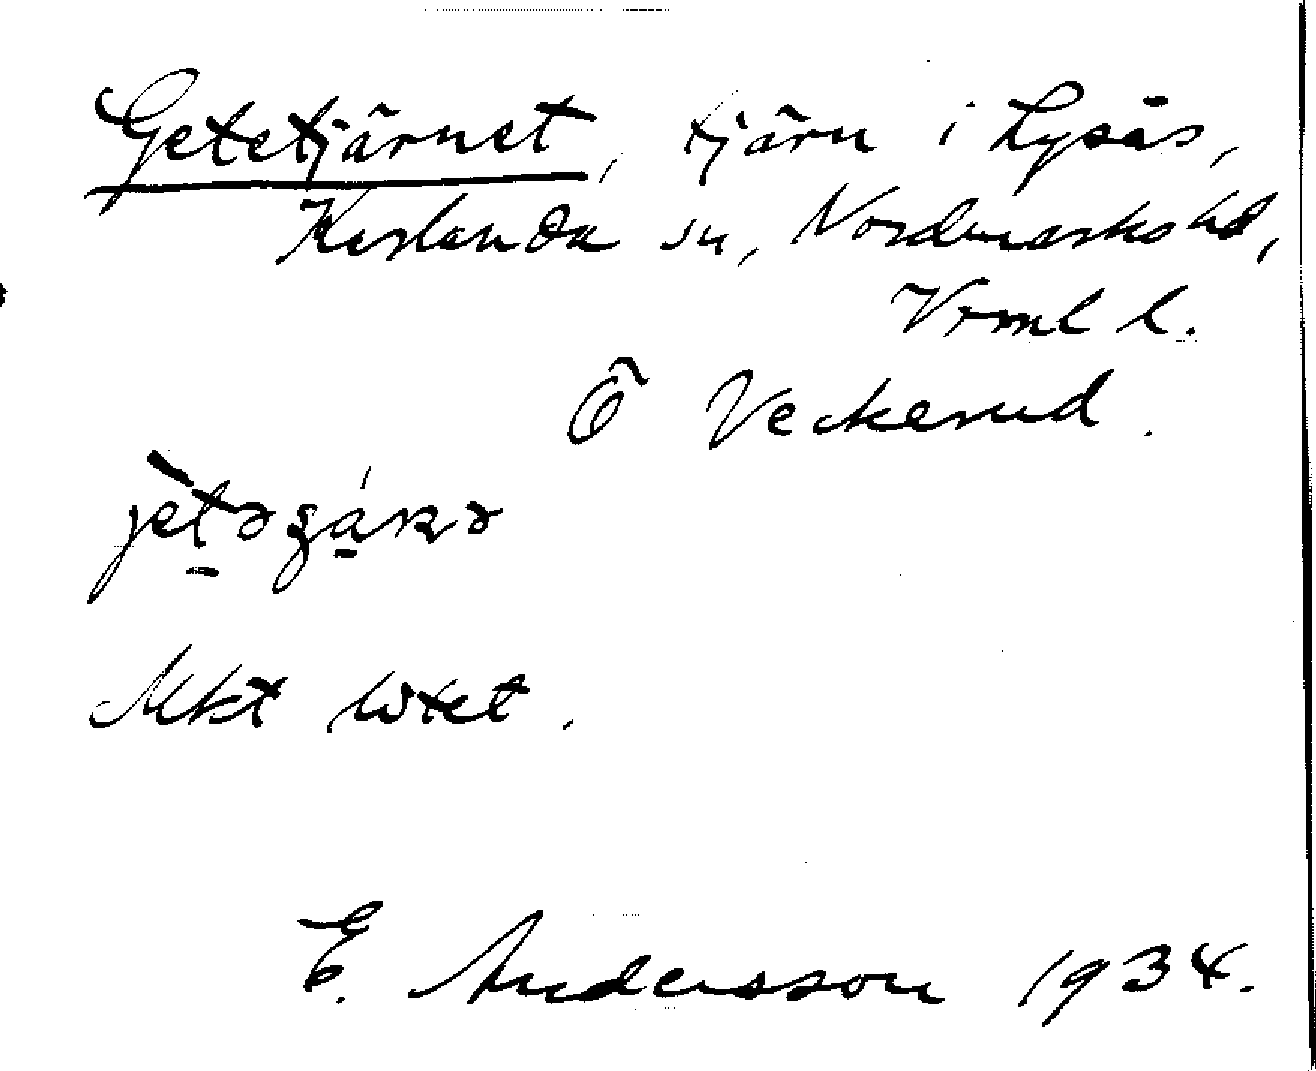 Getetjärnet, tjärn i Lysås,
Karlanda sn, Nordmarks hd,
Vrml l.
Ö Veckerud.
Mkt litet.
E. Andersson 1934.